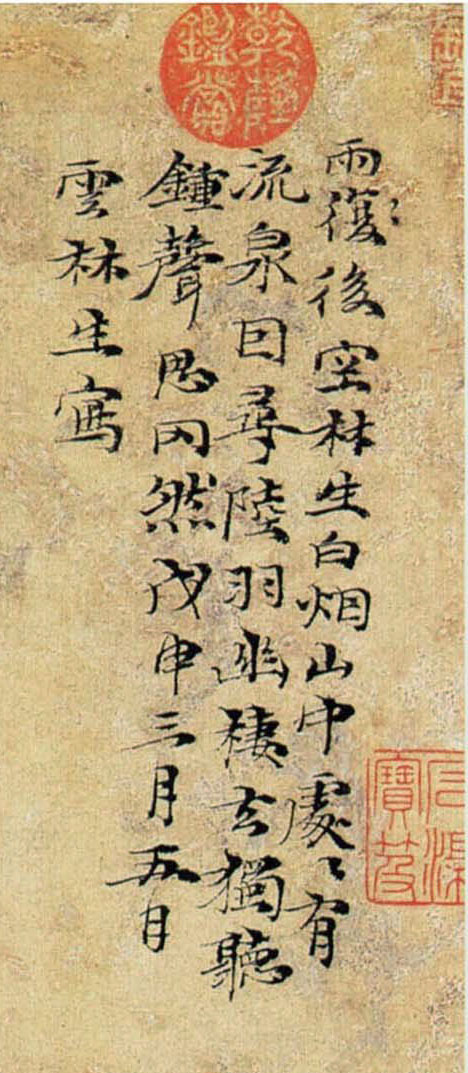 石渠寶笈
雨復後空林生白烟山中處〻有
流泉因尋陸羽幽棲去獨聽
鍾聲思罔然戊申三月五日
雲林生寫
乾隆鑑賞